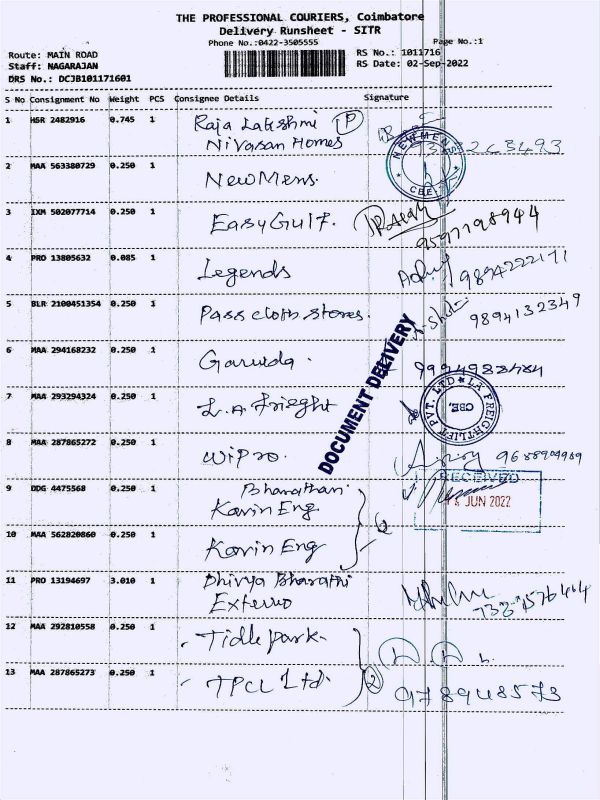 THE PROFESSIONAL COURIERS, Coimbatore
Delivery Runsheet - SITR
Phone No.:0422-3505555
Page No.:1
Route: MAIN ROAD
RS No.: 1011716
Staff: NAGARAJAN
RS Date: 02-Sep-2022
DRS No.: DCJB101171601
S No Consignment No Weight PCS Consignee Details Signature
1 HSR 2482916 0.745 1 Raja Lakshmi P
Nivasan Homes
NEWMENS
CBE
2 MAA 563380729 0.250 1 NewMens.
3 IXM 502077714 0.250 1 EasyGulf.
9597198944
4 PRO 13805632 0.085 1 Legends 9894222171
5 BLR 2100451354 0.250 1 Pass cloth stores. 9894132349
6 MAA 294168232 0.250 1 Garuda.
DOCUMENT DELIVERY
7 MAA 293294324 0.250 1 L.A Frieght
LA FREIGHTLIFT PVT. LTD
CBE.
8 MAA 287865272 0.250 1 Wipro.
RECEIVED
JUN 2022
9 DDG 4475568 0.250 1 Bharathan
Kavin Eng
10 MAA 562820860 0.250 1 Kavin Eng
11 PRO 13194697 3.010 1 Dhivya Bharathi
12 MAA 292810558 0.250 1 Tidle park.
13 MAA 287865273 0.250 1 TPCL Ltd. 2
978948573